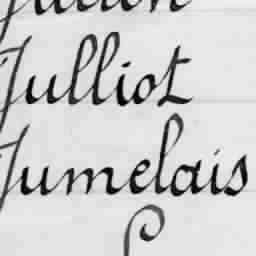 Julliot
Jumelais